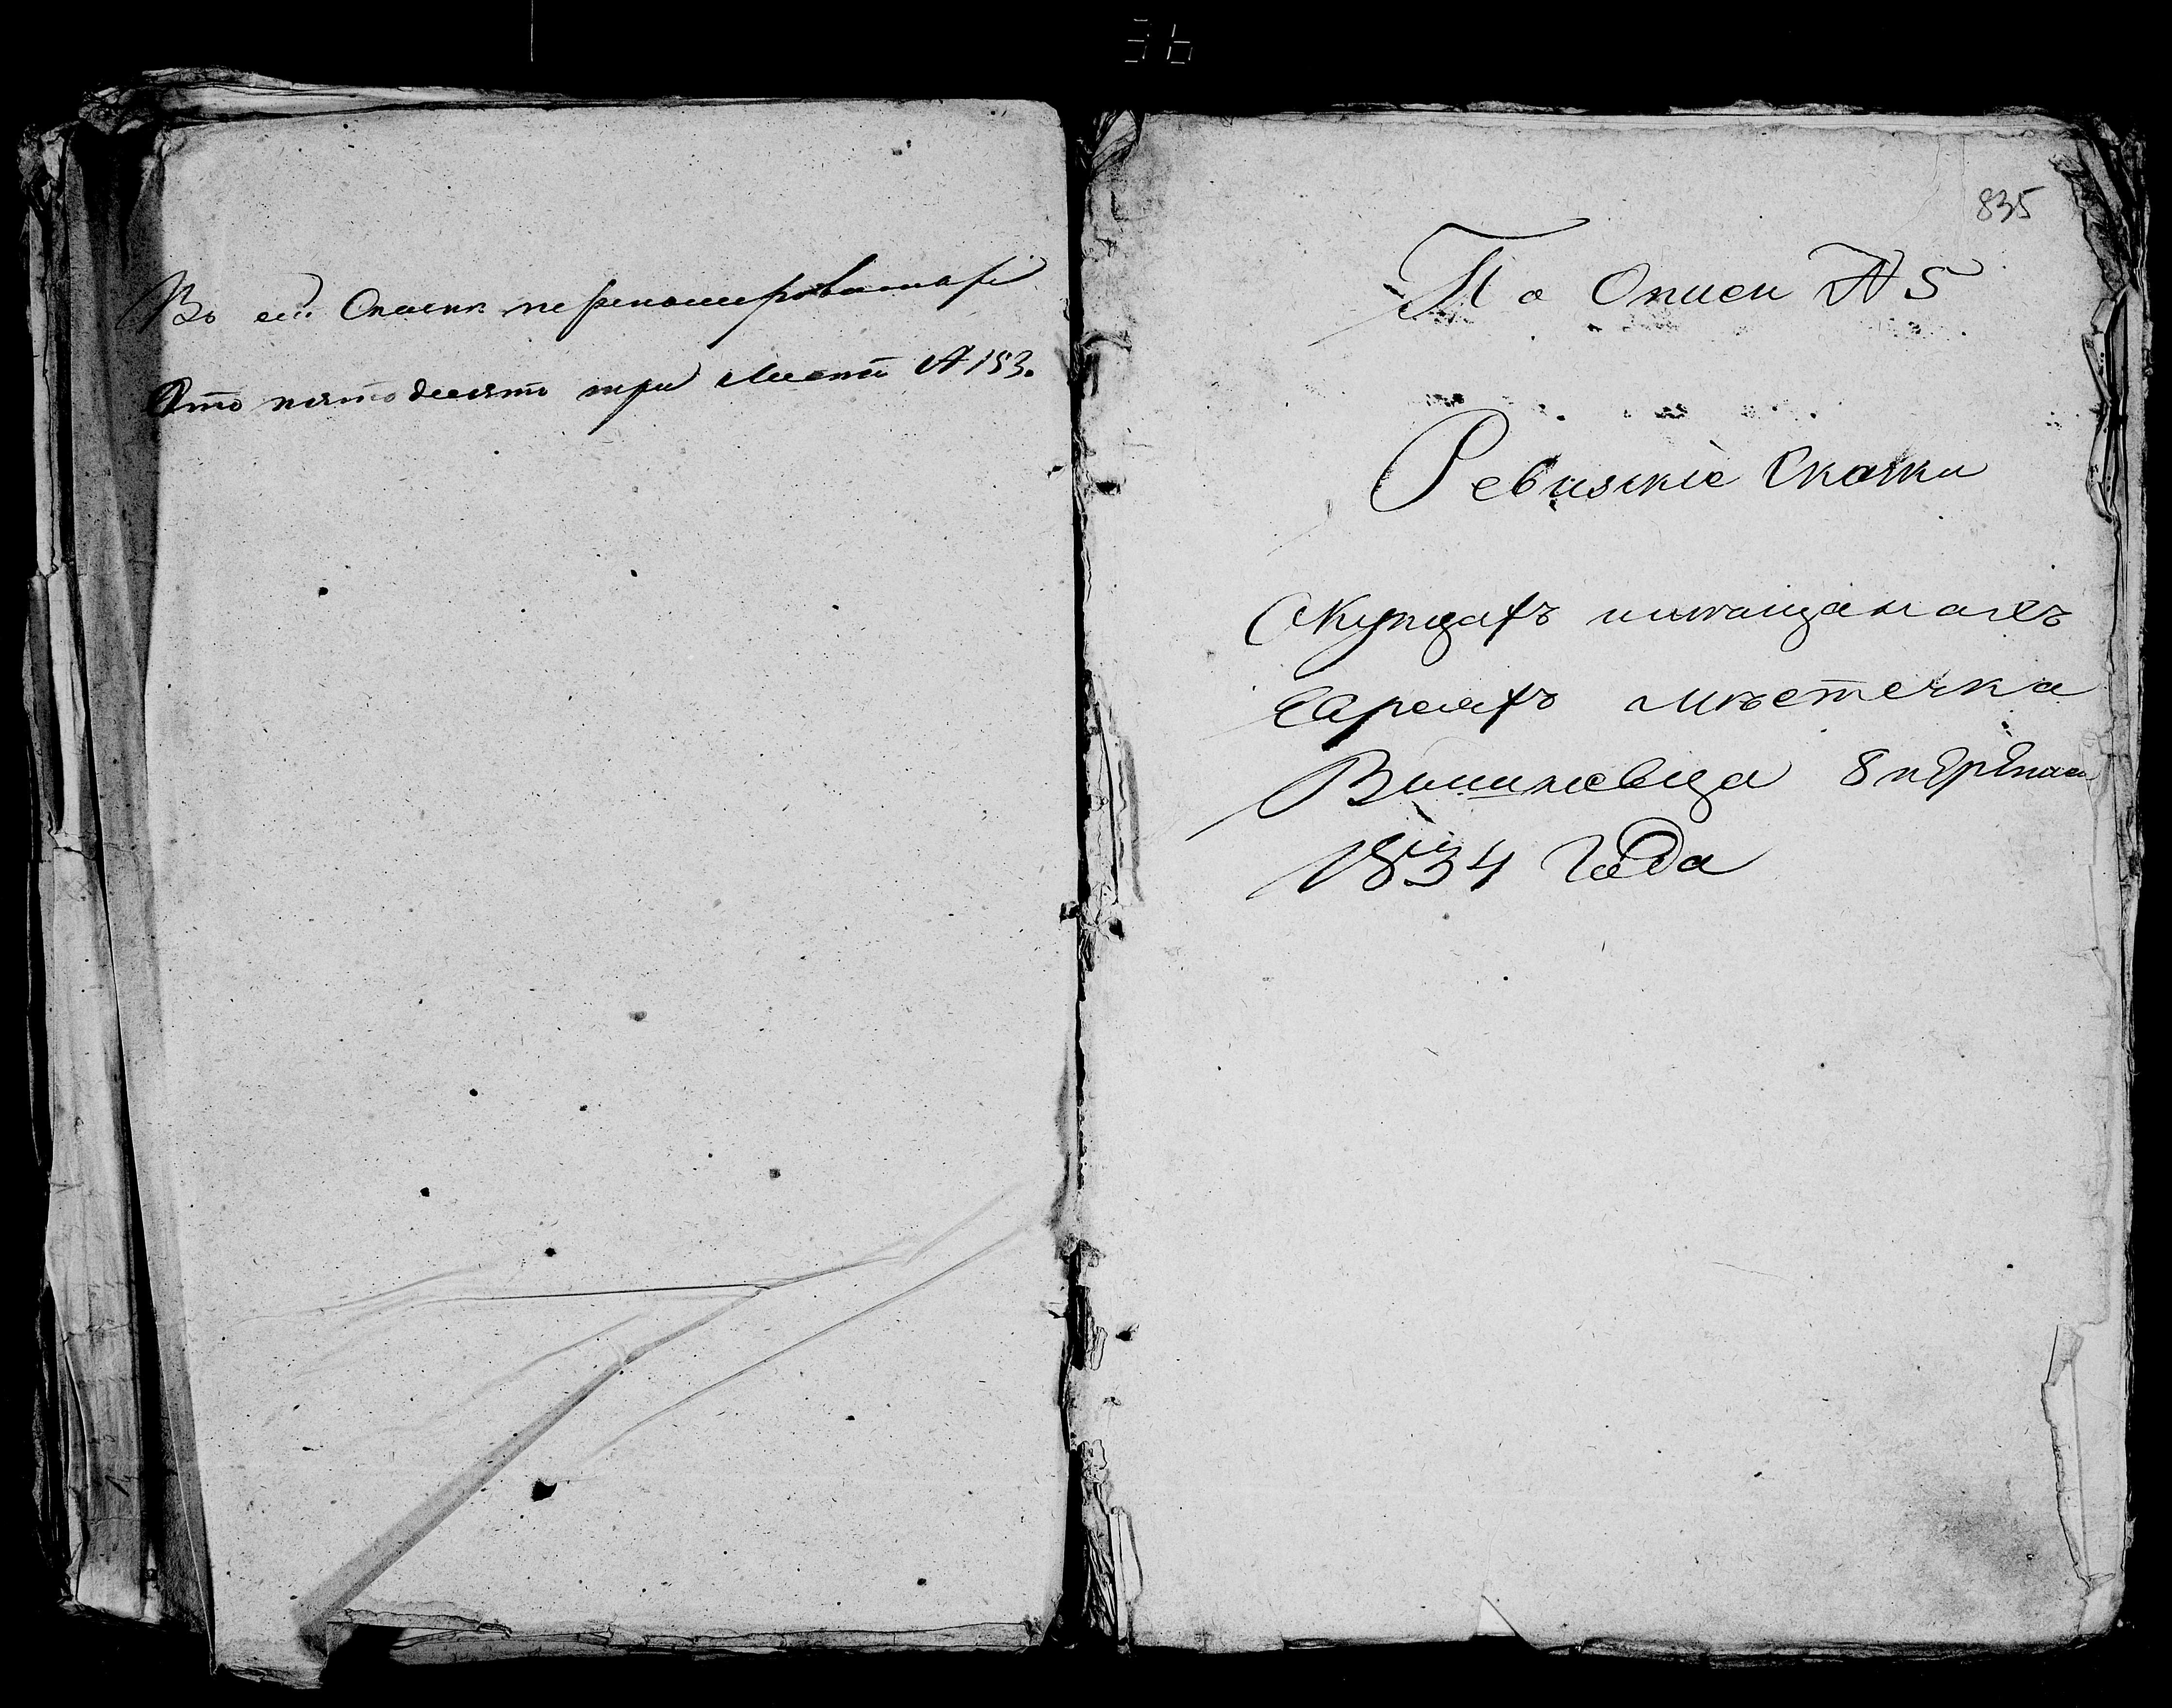 Въ сей Сказкѣ перенумерованыхъ
Сто пятьдесятъ три Листа № 153.
835
По Описи № 5
Ревизскіе Сказки
О Купцахъ и мѣщанахъ
Евреяхъ мѣстечка
Вишневца 8 апрѣля
1834 Года